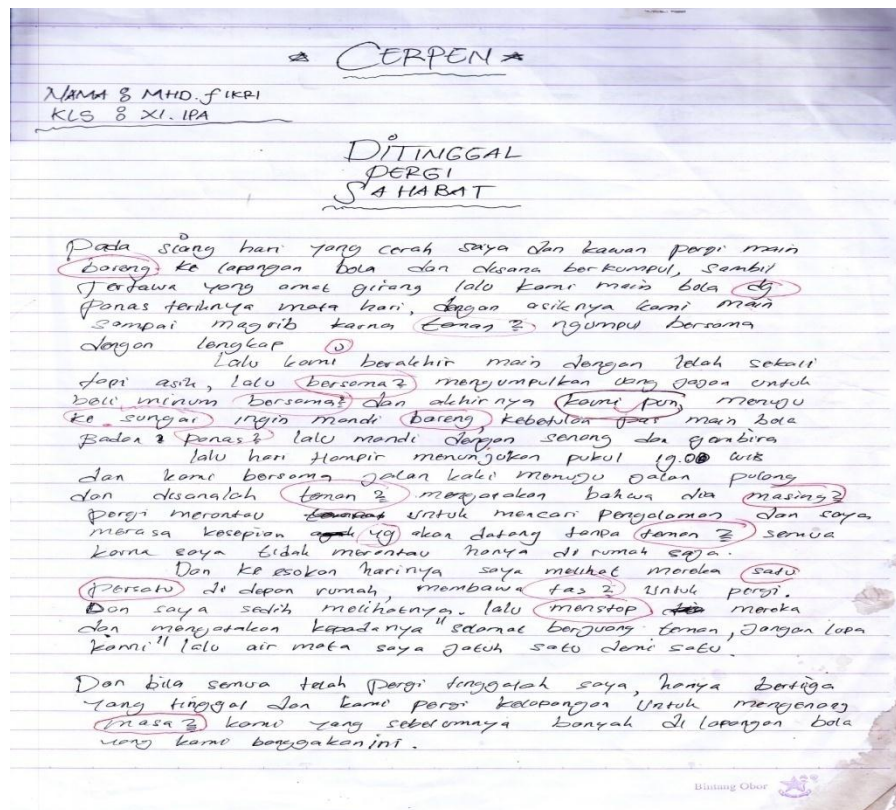 * CERPEN *
NAMA : MHD. FIKRI
KLS : XI. IPA
DITINGGAL
PERGI
SAHABAT
Pada siang hari yang cerah saya dan kawan pergi main
bareng ke lapangan bola dan disana berkumpul, sambil
Tertawa yang amat girang lalu kami main bola dg
panas teriknya mata hari, dengan asiknya kami main
sampai magrib karna teman 2 ngumpul bersama
dengan lengkap
Lalu kami berakhir main dengan lelah sekali
tapi asik, lalu bersama2 mengumpulkan uang jajan untuk
beli minum bersama2 dan akhirnya kami pun, menuju
ke sungai ingin mandi bareng, kebetulan pas main bola
Badan 2 panas2 lalu mandi dengan senang dan gembira
lalu hari Hampir menunjukan pukul 19.00 wib
dan kami bersama jalan kaki menuju jalan pulang
dan disanalah teman 2 mengatakan bahwa dia masing2
pergi merantau untuk mencari pengalaman dan saya
merasa kesepian yg akan datang tanpa teman 2 semua
karna saya tidak merantau hanya di rumah saja.
Dan ke esokan harinya saya melihat mereka satu
persatu di depan rumah, membawa tas 2 untuk pergi.
Dan saya sedih melihatnya. lalu menstop mereka
dan mengatakan kepadanya "selamat berjuang teman, jangan lupa
kami" lalu air mata saya jatuh satu demi satu.
Dan bila semua telah pergi tinggalah saya, hanya bertiga
yang tinggal dan kami pergi kelapangan untuk mengenang
masa2 kami yang sebelumnya banyak di lapangan bola
yang kami banggakan ini.
Bintang Obor